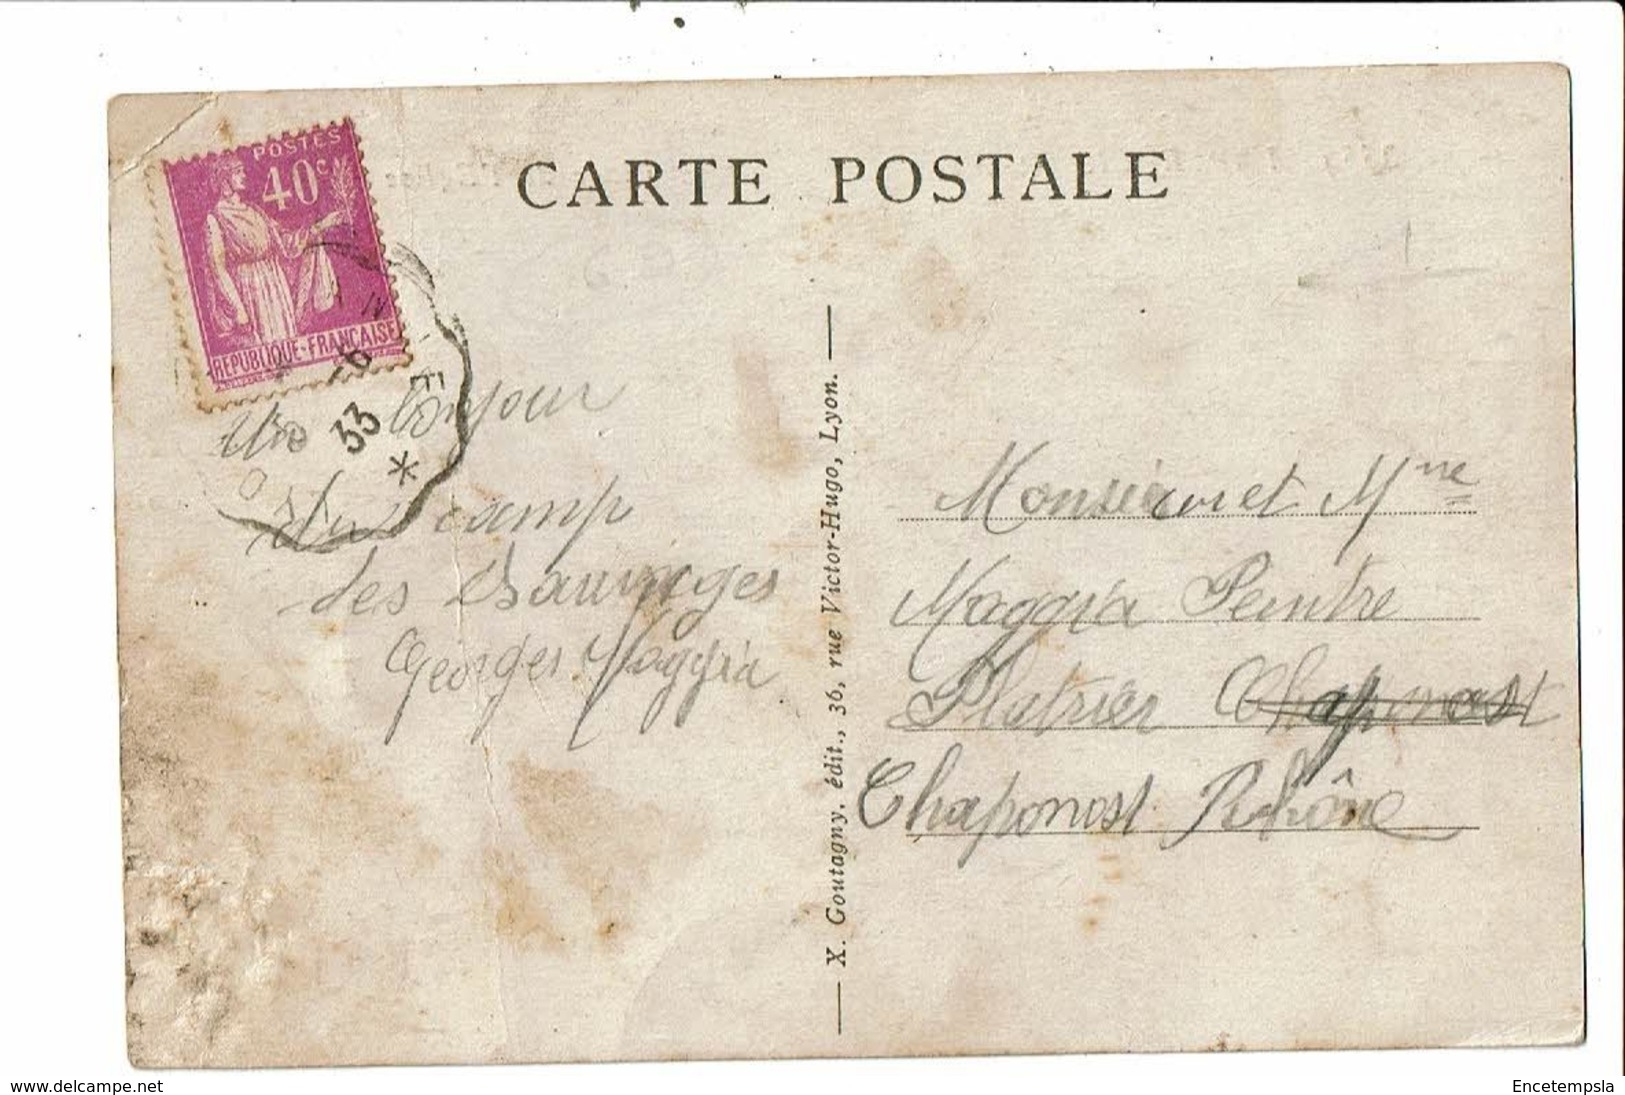 CARTE POSTALE
POSTES
40c
REPUBLIQUE-FRANÇAISE
-6
33
E
*
Un bonjour
du camp
des Sauvages
Georges Maggia
X. Goutagny, édit., 36, rue Victor-Hugo, Lyon.
Monsieur et Mme
Maggia Peintre
Platrier Chaponost
Chaponost Rhône
www.delcampe.net
Encetempsla